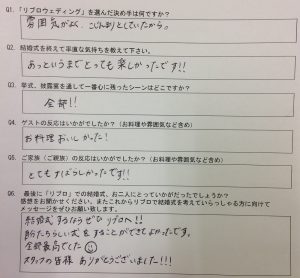 Q1. 「リブロウェディング」を選んだ決め手は何ですか?
雰囲気がよく、こじんまりとしていたから。
Q2. 結婚式を終えて率直な気持ちを教えて下さい。
あっというまでとっても楽しかったです!!
Q3. 挙式、披露宴を通して一番心に残ったシーンはどこですか?
全部!!
Q4. ゲストの反応はいかがでしたか?(お料理や雰囲気など含め)
お料理おいしかった!
Q5. ご家族(ご親族)の反応はいかがでしたか?(お料理や雰囲気など含め)
とてもすばらしかったです!!
Q6. 最後に「リブロ」での結婚式、お二人にとっていかがだったでしょうか?
感想をお聞かせください。またこれからリブロで結婚式を考えていらっしゃる方に向けて
メッセージをぜひお願い致します。
結婚式するならぜひリブロへ!!
自分たちらしい式をすることができてよかったです。
全部最高でした
スタッフの皆様 ありがとうございました!!!